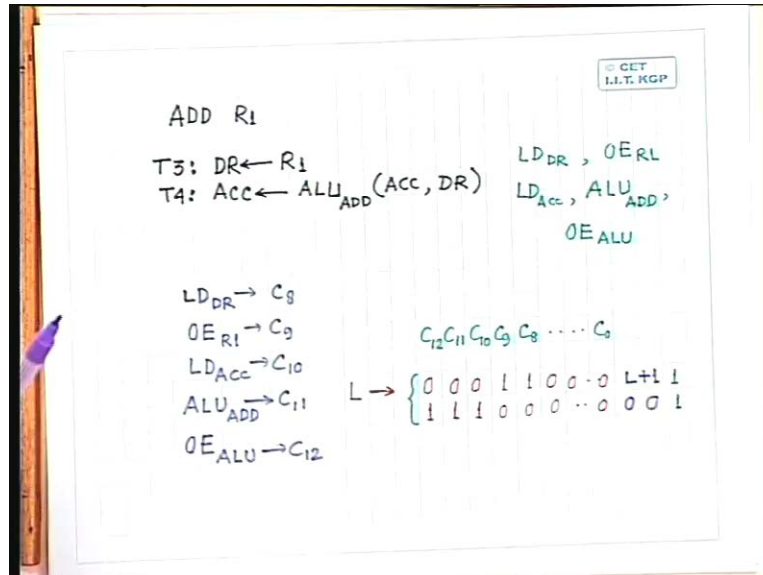 © CET
I.I.T. KGP
ADD R1
T3: DR ← R1
T4: ACC ← ALU_ADD (ACC, DR)
LD_DR , OE_R1
LD_Acc , ALU_ADD ,
OE_ALU
LD_DR → C8
OE_R1 → C9
LD_Acc → C10
ALU_ADD → C11
OE_ALU → C12
C12 C11 C10 C9 C8 ···· C0
L → { 0 0 0 1 1 0 0 ·· 0 L+1 1
1 1 1 0 0 0 ·· 0 0 0 1